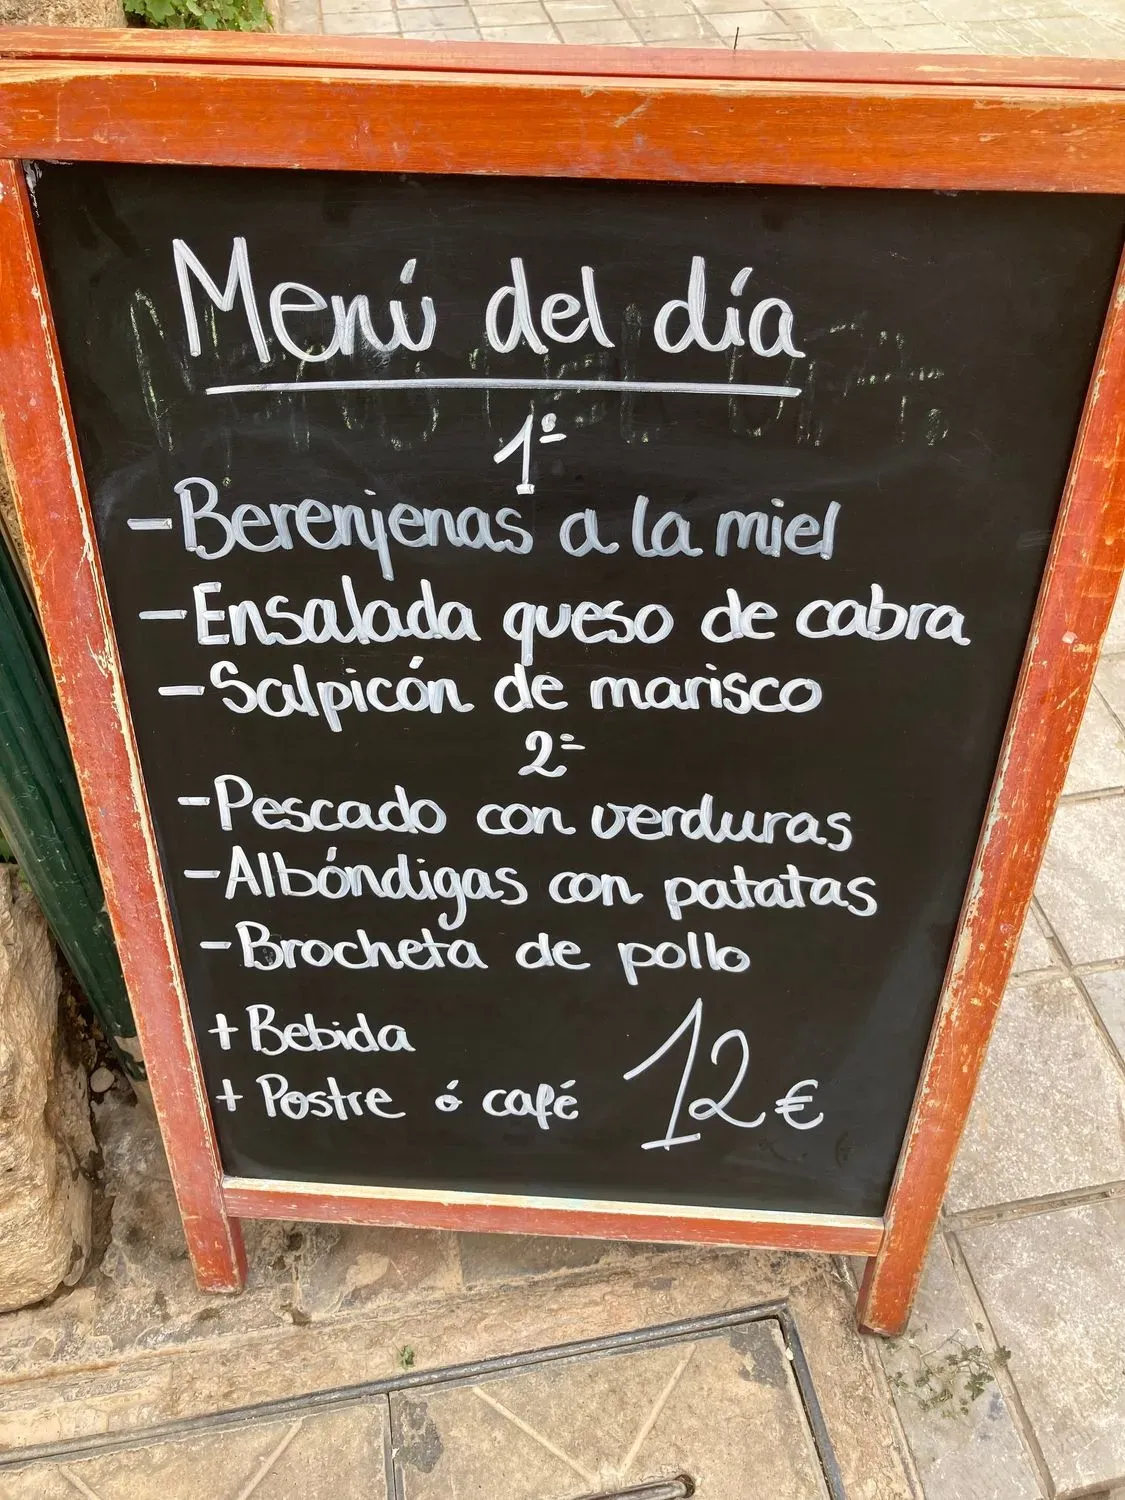 Menú del día
1º
- Berenjenas a la miel
- Ensalada queso de cabra
- Salpicón de marisco
2º
- Pescado con verduras
- Albóndigas con patatas
- Brocheta de pollo
+ Bebida
+ Postre ó café 12€